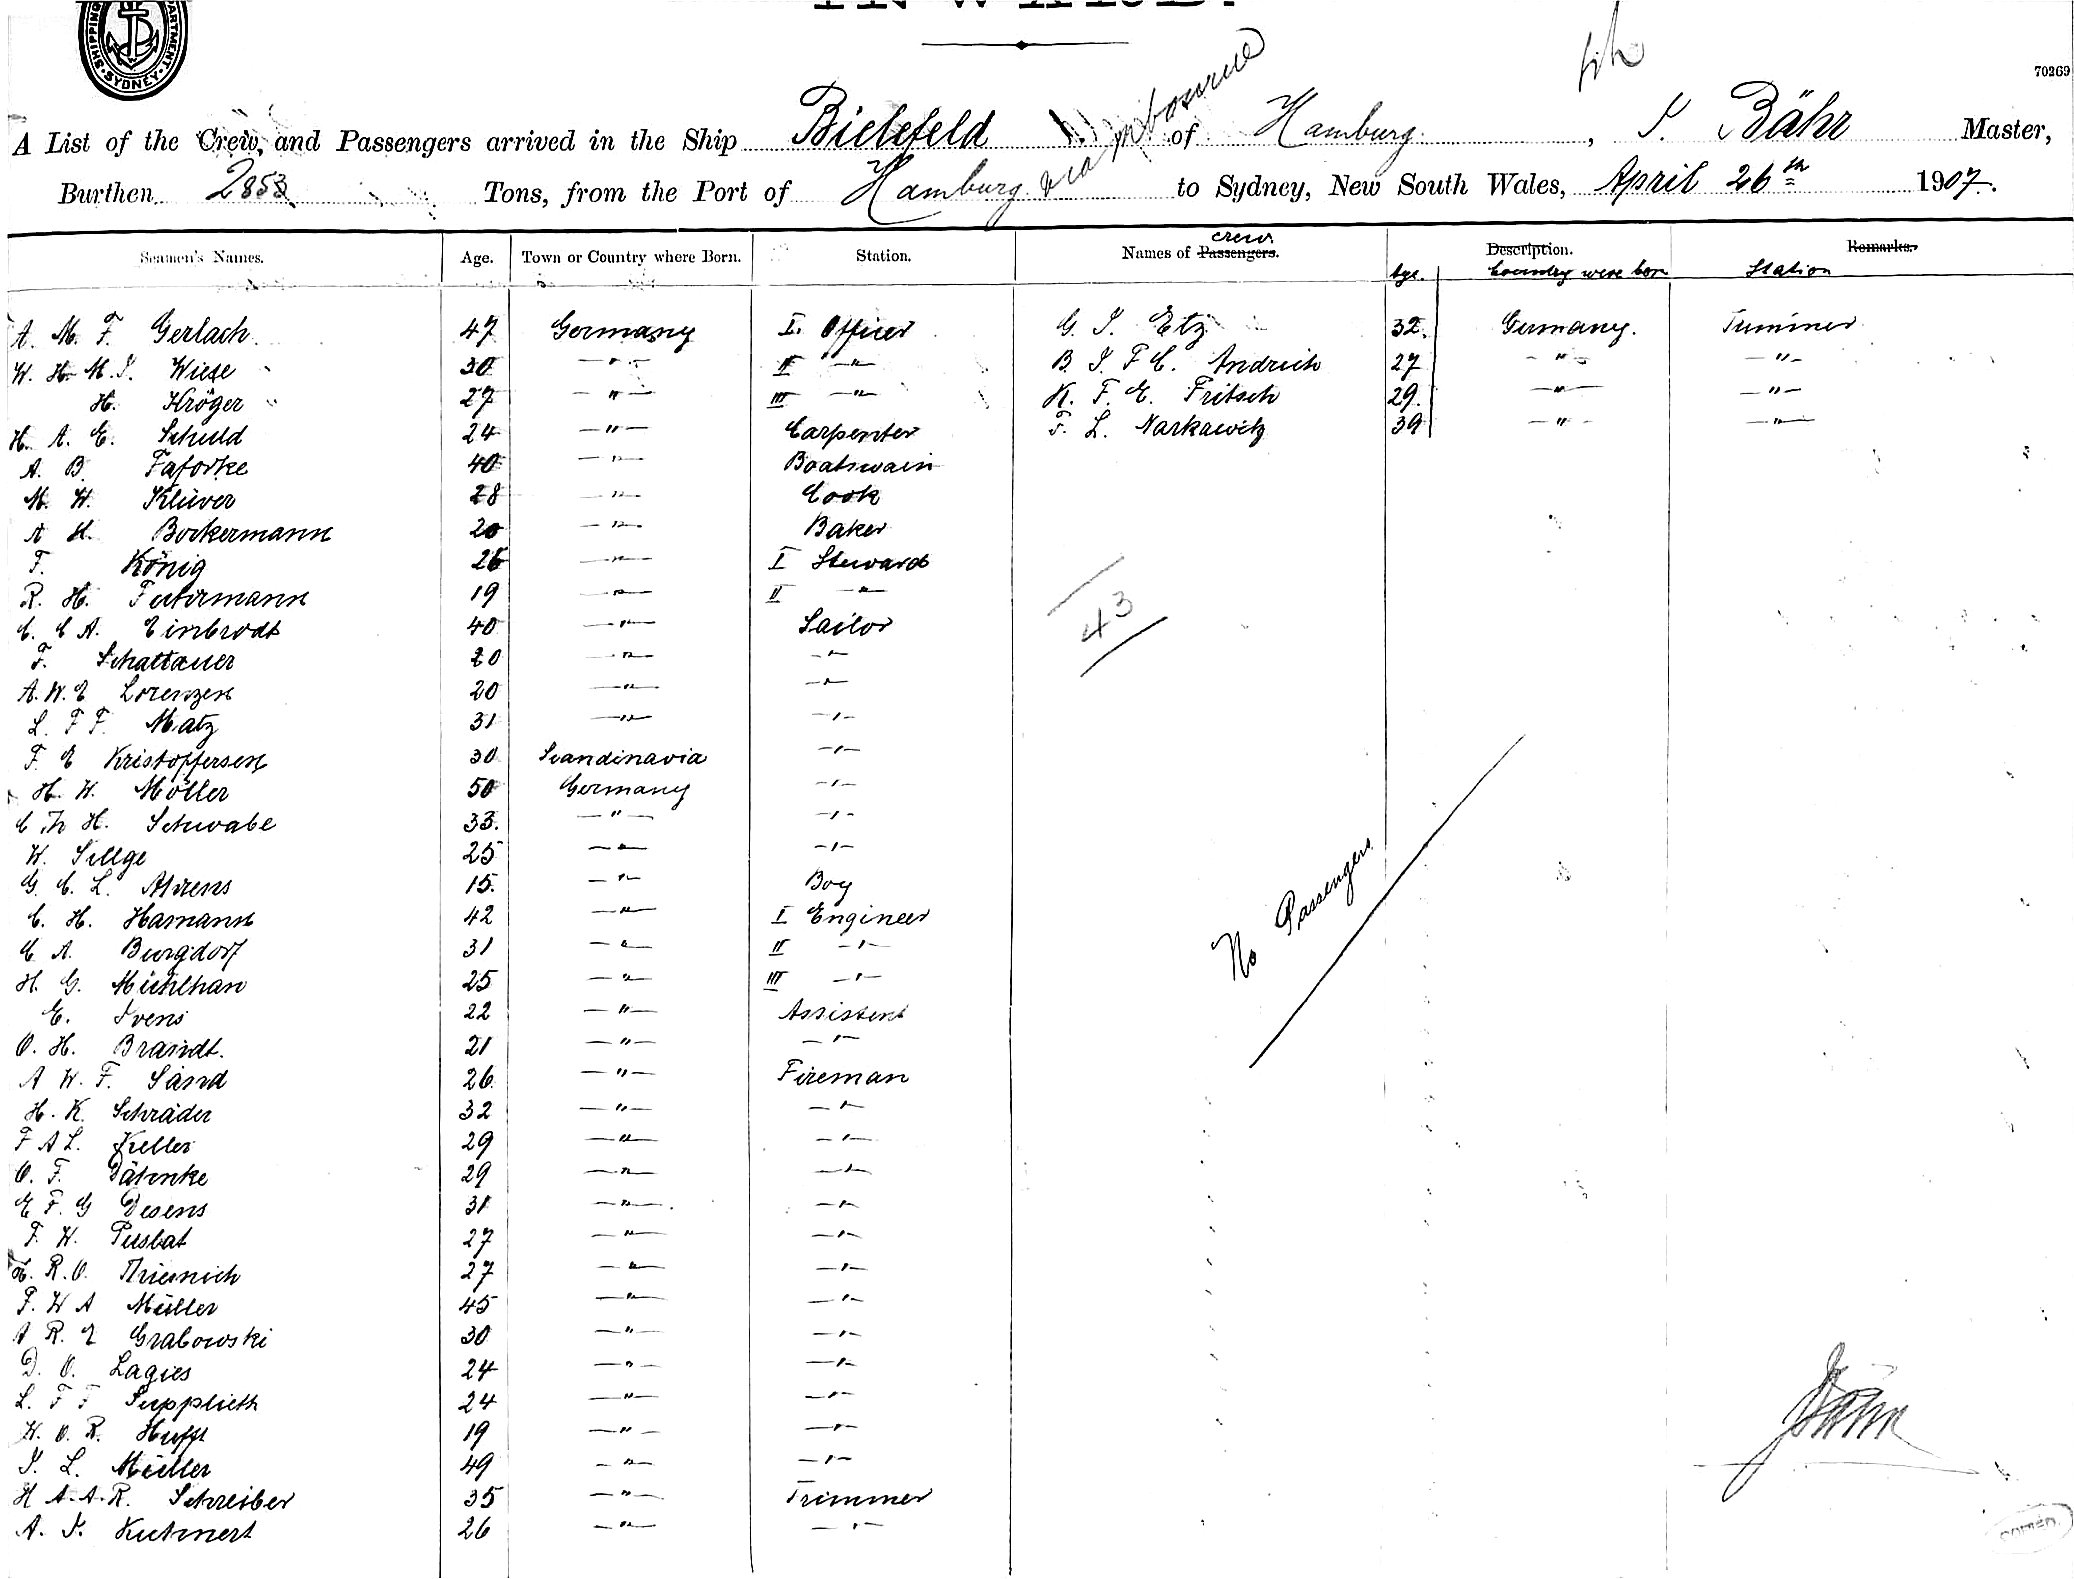 INWARD.
SHIPPING DEPARTMENT SYDNEY
70269
A List of the Crew, and Passengers arrived in the Ship Bielefeld of Hamburg, J. Bähr Master,
Burthen 2853 Tons, from the Port of Hamburg via Melbourne to Sydney, New South Wales, April 26th 1907.
Seamen's Names. Age. Town or Country where Born. Station. Names of Passengers. crew. Description. Remarks.
Age. Country were born Station
A. M. F. Gerlach 47 Germany I. Officer G. J. Etz 32. Germany. Trimmer
W. H. M. J. Wiese 30 — " — II — " — B. J. F. C. Andrich 27 — " — — " —
H. Kröger 27 — " — III — " — K. F. E. Fritsch 29. — " — — " —
H. A. E. Schuld 24 — " — Carpenter F. L. Narkawitz 39 — " — — " —
A. B. Faforke 40 — " — Boatswain
M. W. Klüver 28 — " — Cook
A H. Bockermann 20 — " — Baker
F. König 26 — " — I Steward
R. H. Fuhrmann 19 — " — II — " —
C. C A. Einbrodt 40 — " — Sailor
F. Schattauer 20 — " — — " —
A. W. E Lorenzen 20 — " — — " —
L. F F. Matz 31 — " — — " —
F. E Kristoffersen 30 Scandinavia — " —
H. W. Möller 50 Germany — " —
C Th H. Schwabe 33. — " — — " —
W. Sillge 25 — " — — " —
G. C. L. Ahrens 15. — " — Boy
C. H. Hamann 42 — " — I Engineer
C A. Burgdorf 31 — " — II — " —
H. G. Mühlhan 25 — " — III — " —
E. Ivens 22 — " — Assistent
O. H. Brandt. 21 — " — — " —
A W. F. Sand 26. — " — Fireman
H. K. Schräder 32 — " — — " —
F A L. Keller 29 — " — — " —
O. F. Dähnke 29 — " — — " —
E F. G Desens 31 — " — — " —
F. W. Puslat 27 — " — — " —
H. R. O. Thiemich 27 — " — — " —
P. W A Müller 45 — " — — " —
A R. E Grabowski 30 — " — — " —
D. O. Lagies 24 — " — — " —
L. F F Supplieth 24 — " — — " —
W. O. R. Hufft 19 — " — — " —
J. L. Müller 49 — " — — " —
H A. A. R. Schreiber 35 — " — Trimmer
A. J. Kuhnert 26 — " — — " —
43
No Passengers
Bähr